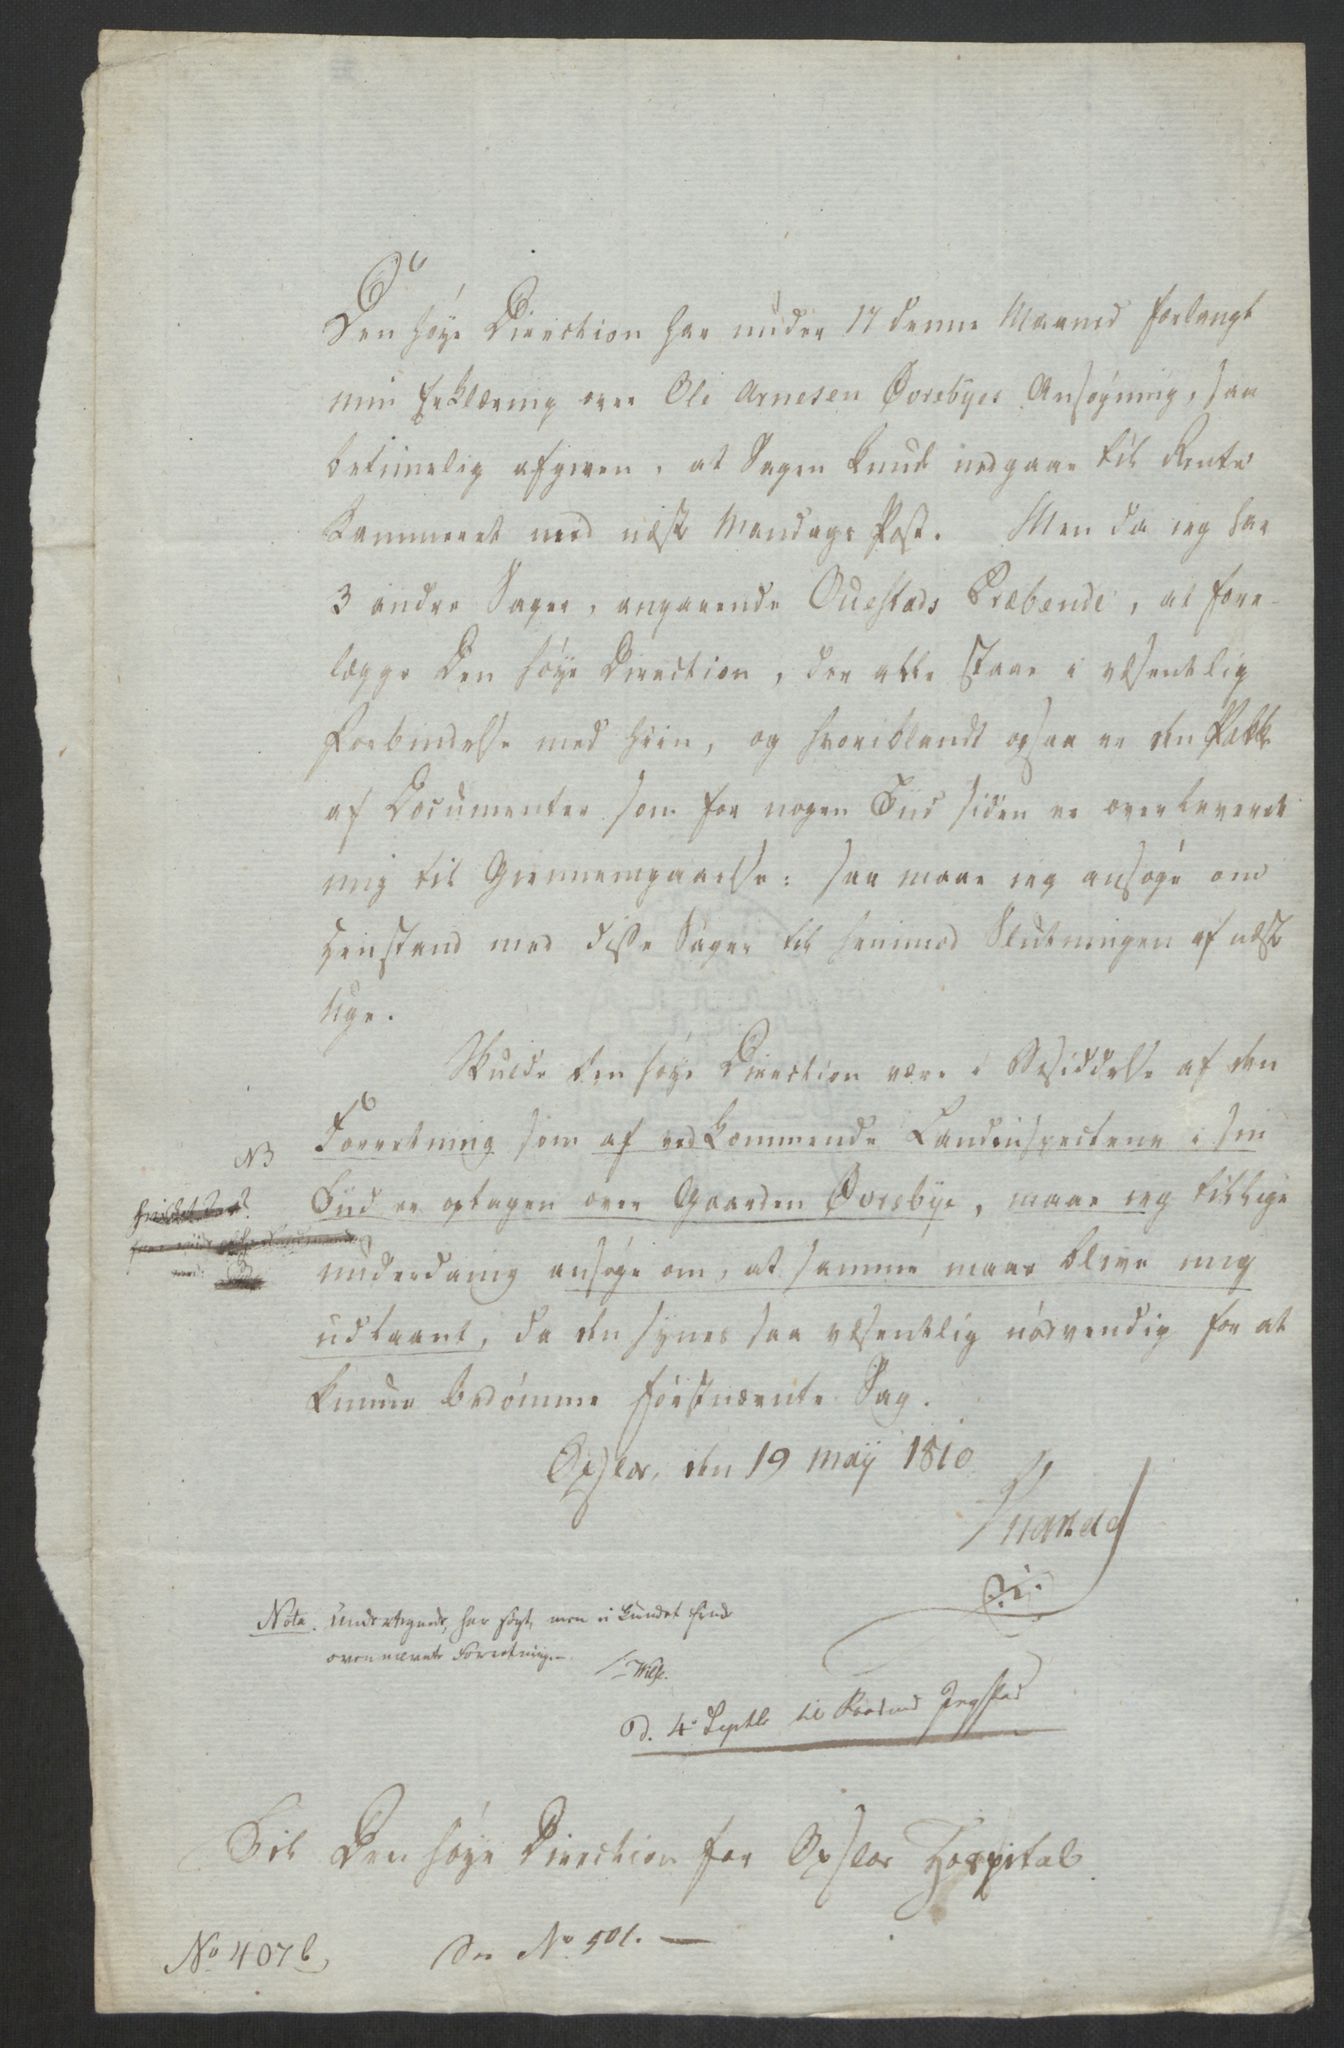 Den høye Direction har under 17 denne Maaned forlangt
min Erklæring over Ole Arnesen Øvrebyes Ansøgning, saa
betimelig afgiven, at Sagen kunde nedgaae til Rente
Kammeret med næste Mandags Post. Men da jeg har
3 andre Sager, angaaende Ouestads Præbende, at fore-
lægge Den høye Direction, der alle staae i væsentlig
Forbindelse med hiin, og hvoriblandt ogsaa er den Pakke
af Documenter som for nogen Tiid siden er overleveret
mig til Giennemgaaelse: saa maae jeg ansøge om
Henstand med disse Sager til henimod Slutningen af næste
Uge.
Skulde den høye Direction være i Besiddelse af den
Forretning som af vedkommende Landinspecteur i sin
NB
Tiid er optagen over Gaarden Øvrebye, maae jeg tillige
underdanig ansøge om, at samme maae blive mig
udlaant, da den synes saa væsentlig nødvendig for at
kunne bedømme førstnævnte Sag.
Opsloe, den 19 Maij 1810
Nota. Undertegnede, har søgt, men ei kundet finde
ovennævnte Forretning.
Wilse.
d. 4 Septb til Raadmd Ingstad
Til Den høye Direction for Opsloe Hospital
No 407 b, See No 501. —